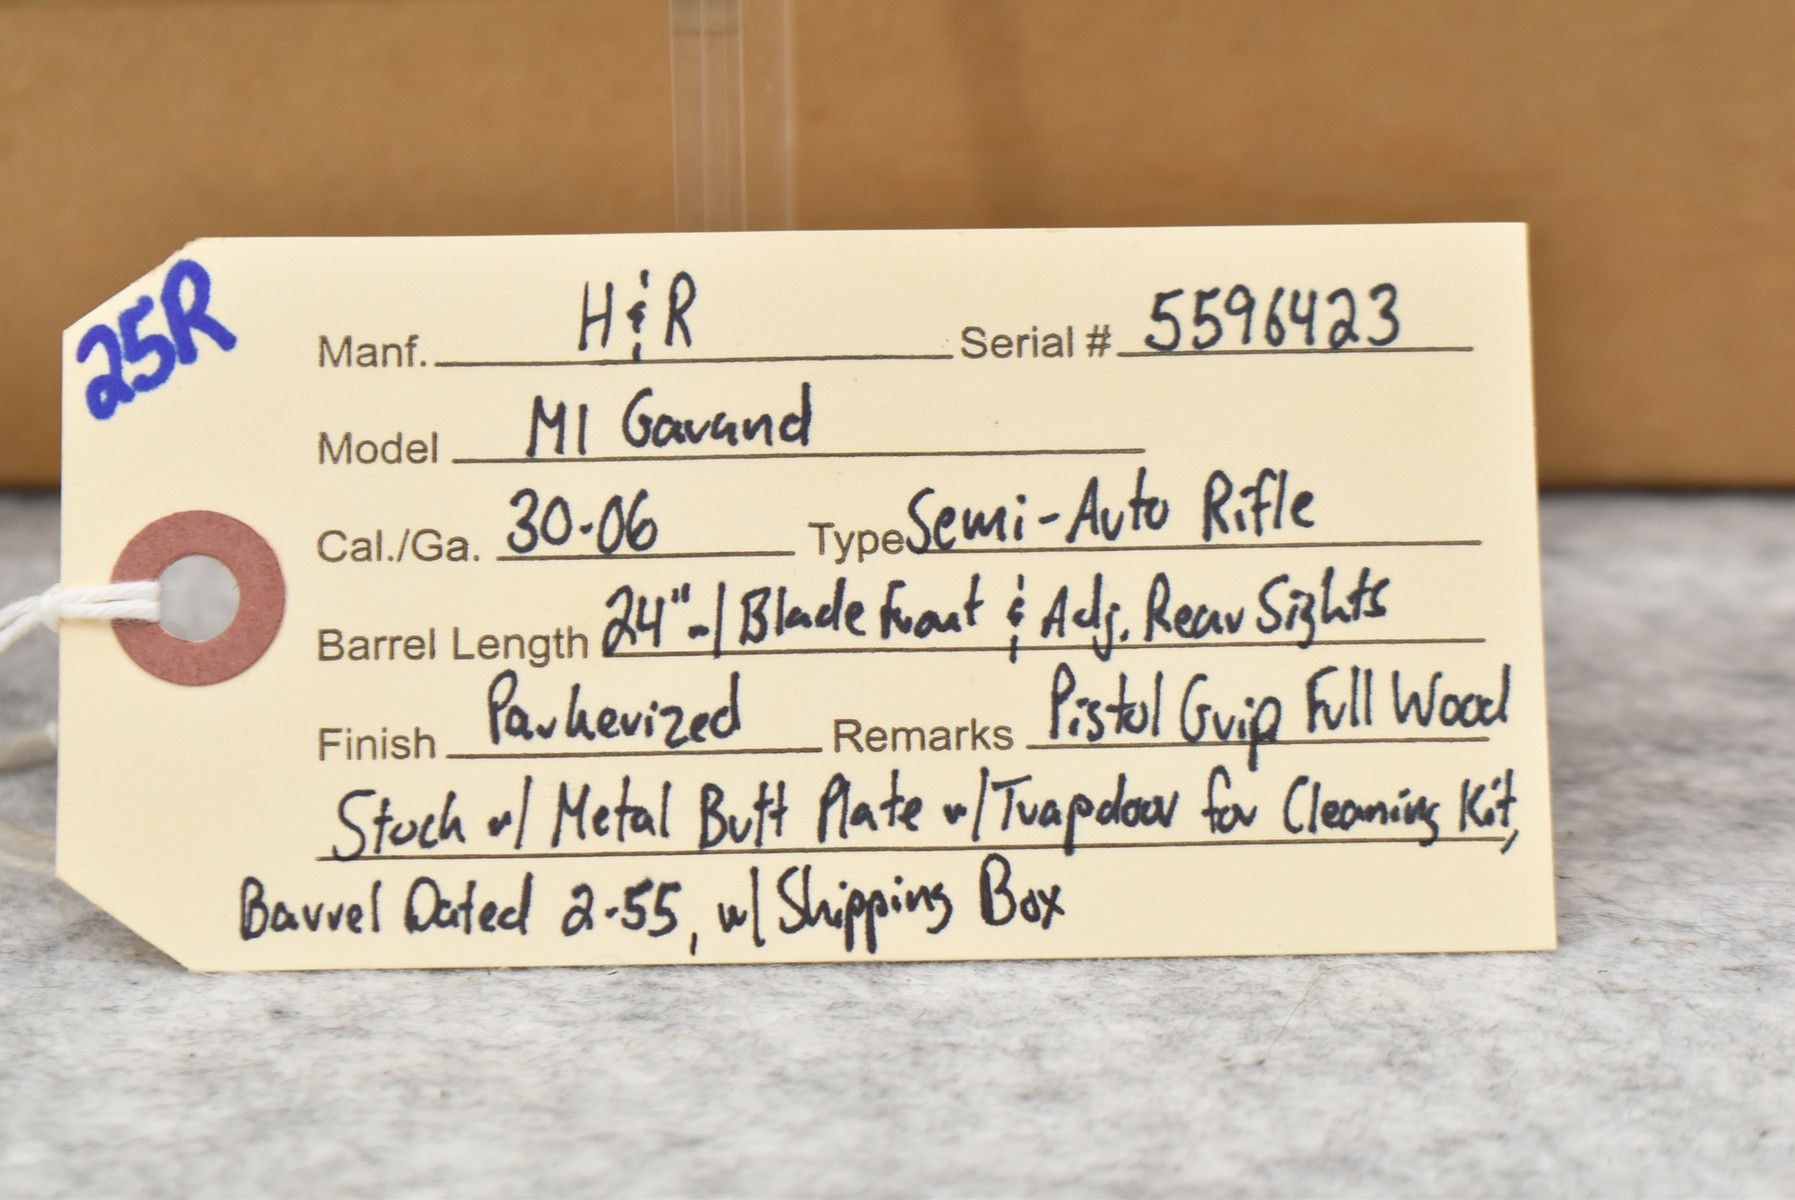 25R
Manf. H & R Serial # 5596423
Model M1 Garand
Cal./Ga. 30-06 Type Semi-Auto Rifle
Barrel Length 24" w/ Blade Front & Adj. Rear Sights
Finish Parkerized Remarks Pistol Grip Full Wood
Stock w/ Metal Butt Plate w/ Trapdoor for Cleaning Kit,
Barrel Dated 2-55, w/ Shipping Box